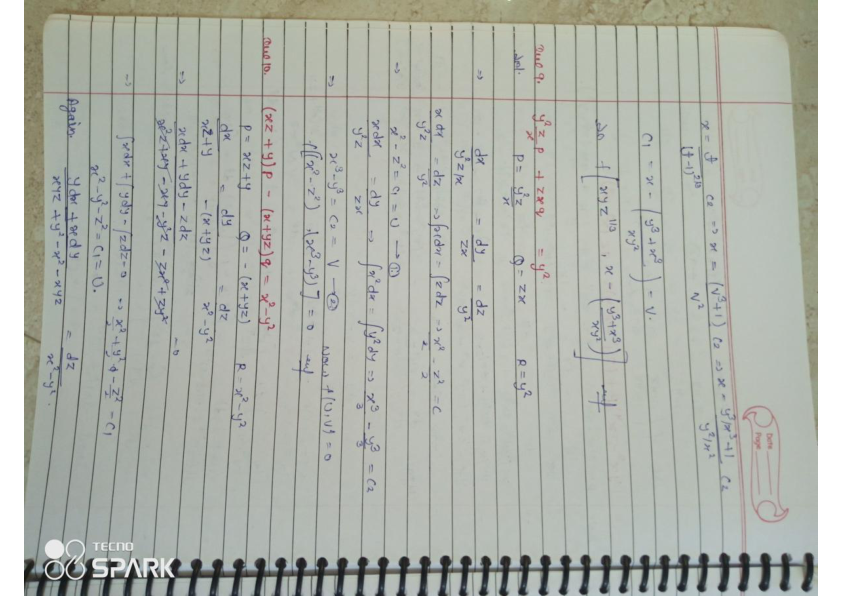 Date
Page
x = v / (t-1)^2/3 C2 ⇒ x = (v³+1) / v² C2 ⇒ x = y³/x³+1 / y²/x² C2
C1 = x - (y³+x³ / xy²) = v.
So f[xyz^1/3 , x - (y³+x³ / xy²)]
Que 9. y²z/x p + zxq = y²
Sol. P = y²z/x Q = zx R = y²
⇒ dx / y²z/x = dy / zx = dz / y²
x dx / y²z = dz / y² ⇒ ∫xdx = ∫zdz ⇒ x²/2 - z²/2 = C
⇒ x² - z² = C1 = U → ①
xdx / y²z = dy / zx ⇒ ∫x²dx = ∫y²dy ⇒ x³/3 - y³/3 = C2
⇒ x³-y³ = C2 = V → ② Now f(U,V) = 0
f[(x²-z²) , (x³-y³)] = 0
Que 10. (xz+y)p - (x+yz)q = x²-y²
P = xz+y Q = -(x+yz) R = x²-y²
dx / xz+y = dy / -(x+yz) = dz / x²-y²
⇒ xdx + ydy - zdz / x²z+xy-xy-y²z-zx²+zy² = 0
⇒ ∫xdx + ∫ydy - ∫zdz = 0 ⇒ x²/2 + y²/2 - z²/2 = C1
x²-y²-z² = C1 = U.
Again. ydx + xdy / xyz+y²-x²-xyz = dz / x²-y².
TECNO
SPARK